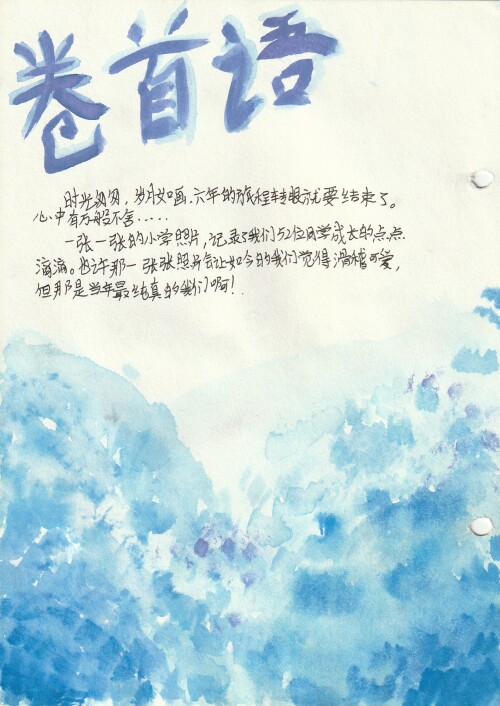 卷首语
时光匆匆，岁月如画，六年的旅程转眼就要结束了。
心中有万般不舍……
一张一张的小学照片，记录了我们52位同学成长的点点
滴滴。也许那一张张照片会让如今的我们觉得滑稽可爱，
但那是当年最纯真的我们啊！